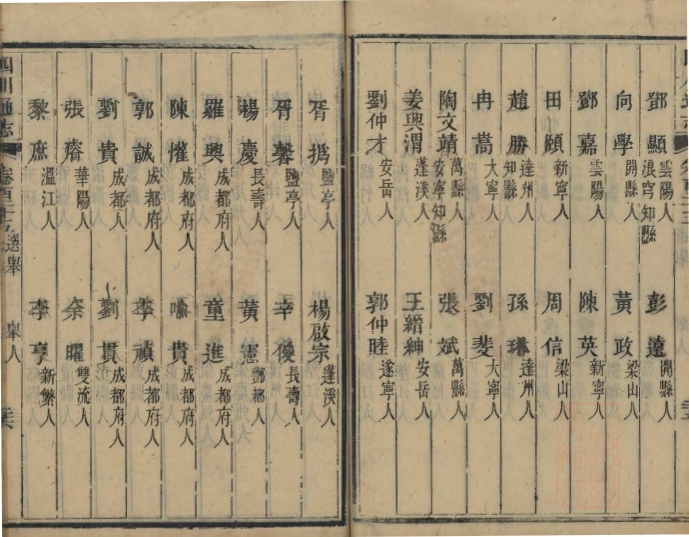 鄧顯 雲陽人浪穹知縣 彭遠 開縣人
向學 開縣人 黃政 梁山人
鄧嘉 雲陽人 陳英 新寧人
田頤 新寧人 周信 梁山人
趙勝 達州人知縣 孫琳 達州人
冉蒿 大寧人 劉斐 大寧人
陶文靖 萬縣人安寧知縣 張斌 萬縣人
姜興渭 蓬溪人 王縉紳 安岳人
劉仲才 安岳人 郭仲睦 遂寧人
胥撝 鹽亭人 楊啟宗 蓬溪人
胥馨 鹽亭人 幸俊 長壽人
楊慶 長壽人 黃憲 酆都人
羅興 成都府人 童進 成都府人
陳惟 成都府人 喻貴 成都府人
郭誠 成都府人 李禎 成都府人
劉貴 成都府人 劉貫 成都府人
張睿 華陽人 余曜 雙流人
黎庶 溫江人 李亨 新繁人
四川通志 選舉 舉人